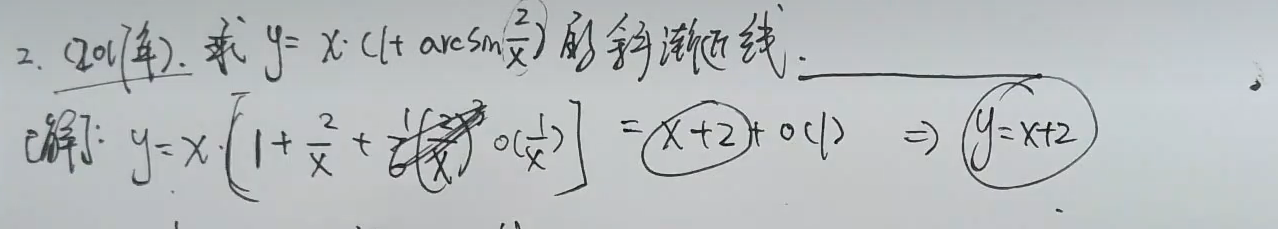 2. (2017年). 求 y = x·(1+ arcsin 2/x) 的斜渐近线.
[解]: y = x·[1 + 2/x + o(1/x)] = x+2 + o(1) ⇒ y=x+2